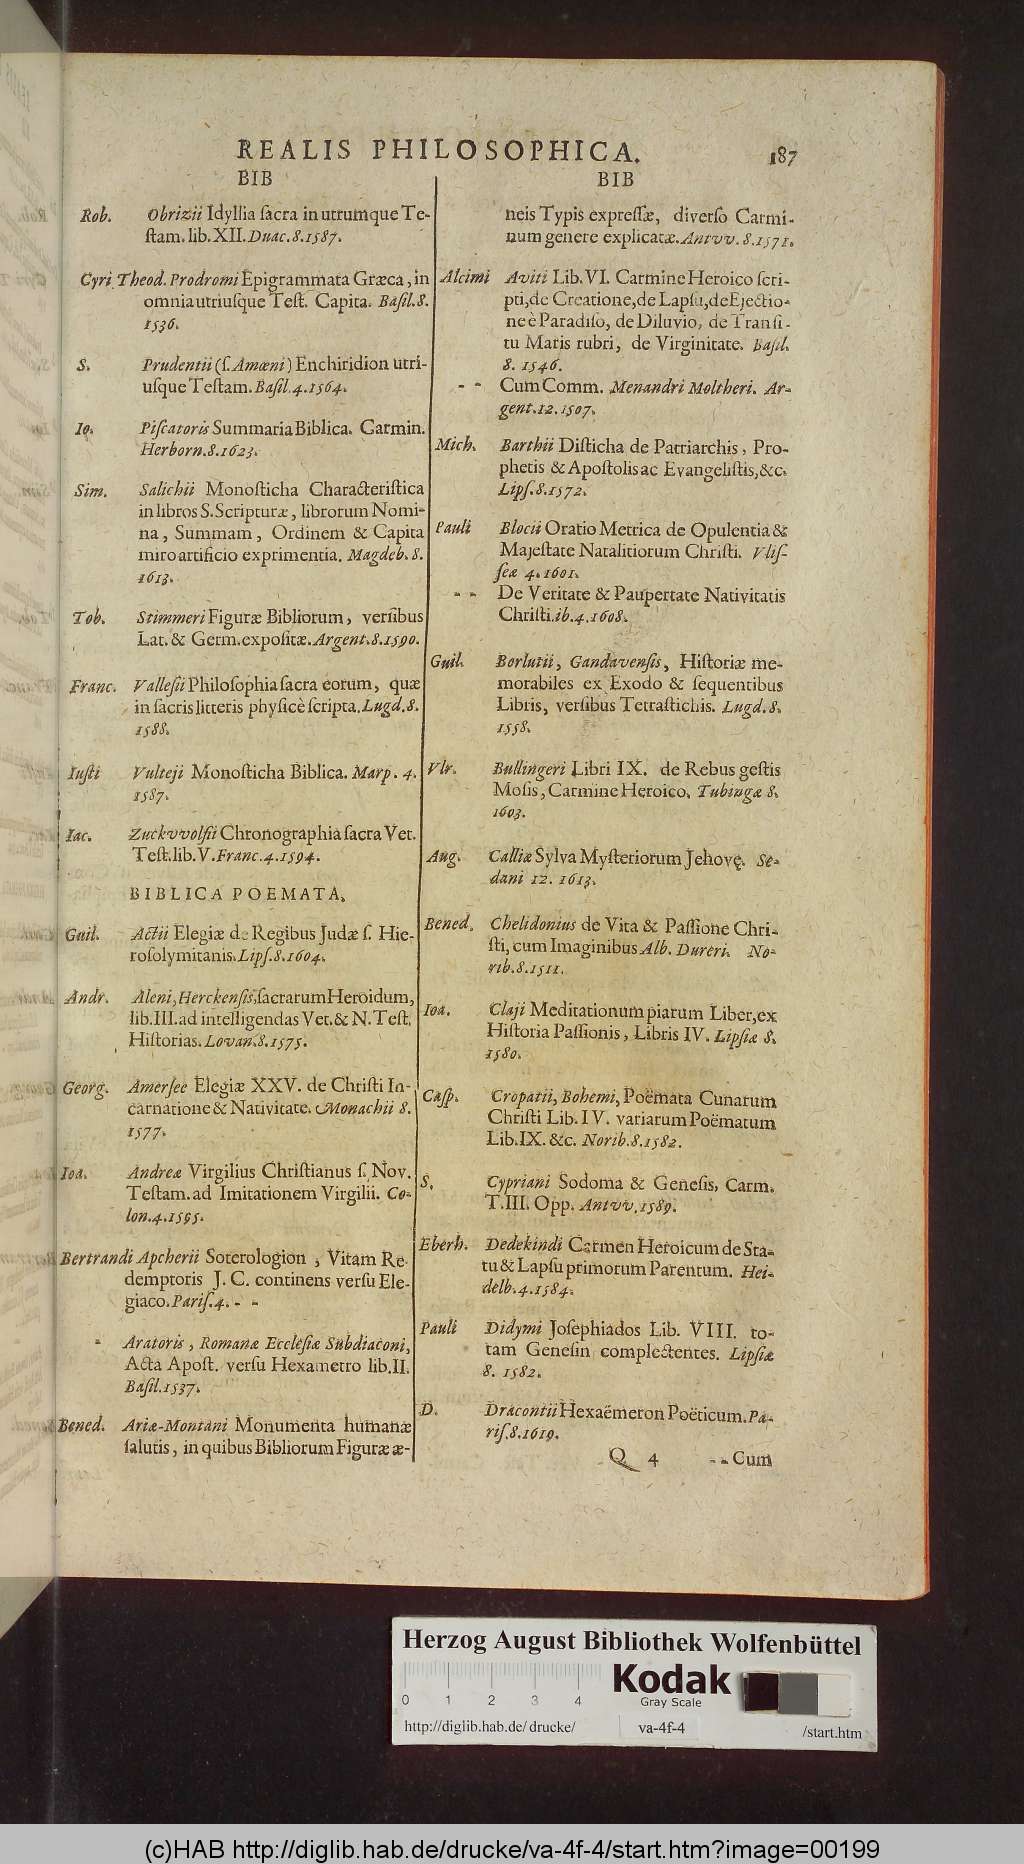 REALIS PHILOSOPHICA. 187
BIB
Rob. Obrizii Idyllia ſacra in utrumque Te-
ſtam. lib. XII. Duac. 8. 1587.
Cyri Theod. Prodromi Epigrammata Græca, in
omnia utriuſque Teſt. Capita. Baſil. 8.
1536.
S. Prudentii (ſ. Amœni) Enchiridion utri-
uſque Teſtam. Baſil. 4. 1564.
Io. Piſcatoris Summaria Biblica. Carmin.
Herborn. 8. 1623.
Sim. Salichii Monoſticha Characteriſtica
in libros S. Scripturæ, librorum Nomi-
na, Summam, Ordinem & Capita
miro artificio exprimentia. Magdeb. 8.
1613.
Tob. Stimmeri Figuræ Bibliorum, verſibus
Lat. & Germ. expoſitæ. Argent. 8. 1590.
Franc. Valleſii Philoſophia ſacra eorum, quæ
in ſacris litteris phyſicè ſcripta. Lugd. 8.
1588.
Iuſti Vulteji Monoſticha Biblica. Marp. 4.
1587.
Iac. Zuckvvolfii Chronographia ſacra Vet.
Teſt. lib. V. Franc. 4. 1594.
BIBLICA POEMATA.
Guil. Actii Elegiæ de Regibus Judæ ſ. Hie-
roſolymitanis. Lipſ. 8. 1604.
Andr. Aleni, Herckenſis, ſacrarum Heroidum,
lib. III. ad intelligendas Vet. & N. Teſt.
Hiſtorias. Lovan. 8. 1575.
Georg. Amerſee Elegiæ XXV. de Chriſti In-
carnatione & Nativitate. Monachii 8.
1577.
Ioa. Andreæ Virgilius Chriſtianus ſ. Nov.
Teſtam. ad Imitationem Virgilii. Co-
lon. 4. 1595.
Bertrandi Apcherii Soterologion, Vitam Re
demptoris J. C. continens verſu Ele-
giaco. Pariſ. 4. - -
- Aratoris, Romanæ Eccleſiæ Subdiaconi,
Acta Apoſt. verſu Hexametro lib. II.
Baſil. 1537.
Bened. Ariæ-Montani Monumenta humanæ
ſalutis, in quibus Bibliorum Figuræ æ-
BIB
neis Typis expreſſæ, diverſo Carmi-
num genere explicatæ. Antvv. 8. 1571.
Alcimi Aviti Lib. VI. Carmine Heroico ſcri-
pti, de Creatione, de Lapſu, de Ejectio-
ne è Paradiſo, de Diluvio, de Tranſi-
tu Maris rubri, de Virginitate. Baſil.
8. 1546.
- - Cum Comm. Menandri Moltheri. Ar-
gent. 12. 1507.
Mich. Barthii Diſticha de Patriarchis, Pro-
phetis & Apoſtolis ac Evangeliſtis, &c.
Lipſ. 8. 1572.
Pauli Blocii Oratio Metrica de Opulentia &
Majeſtate Natalitiorum Chriſti. Vliſ-
ſeæ 4. 1601.
- - De Veritate & Paupertate Nativitatis
Chriſti. ib. 4. 1608.
Guil. Borlutii, Gandavenſis, Hiſtoriæ me-
morabiles ex Exodo & ſequentibus
Libris, verſibus Tetraſtichis. Lugd. 8.
1558.
Vlr. Bullingeri Libri IX. de Rebus geſtis
Moſis, Carmine Heroico. Tubingæ 8.
1603.
Aug. Calliæ Sylva Myſteriorum Jehovę. Se-
dani 12. 1613.
Bened. Chelidonius de Vita & Paſſione Chri-
ſti, cum Imaginibus Alb. Dureri. No-
rib. 8. 1511.
Ioa. Claji Meditationum piarum Liber, ex
Hiſtoria Paſſionis, Libris IV. Lipſiæ 8.
1580.
Caſp. Cropatii, Bohemi, Poëmata Cunarum
Chriſti Lib. IV. variarum Poëmatum
Lib. IX. &c. Norib. 8. 1582.
S. Cypriani Sodoma & Geneſis, Carm.
T. III. Opp. Antvv. 1589.
Eberh. Dedekindi Carmen Heroicum de Sta-
tu & Lapſu primorum Parentum. Hei-
delb. 4. 1584.
Pauli Didymi Joſephiados Lib. VIII. to-
tam Geneſin complectentes. Lipſiæ
8. 1582.
D. Dracontii Hexaëmeron Poëticum. Pa-
riſ. 8. 1619.
Q 4 - - Cum
Herzog August Bibliothek Wolfenbüttel
Kodak
Gray Scale
0 1 2 3 4
http://diglib.hab.de/drucke/ va-4f-4 /start.htm
(c)HAB http://diglib.hab.de/drucke/va-4f-4/start.htm?image=00199